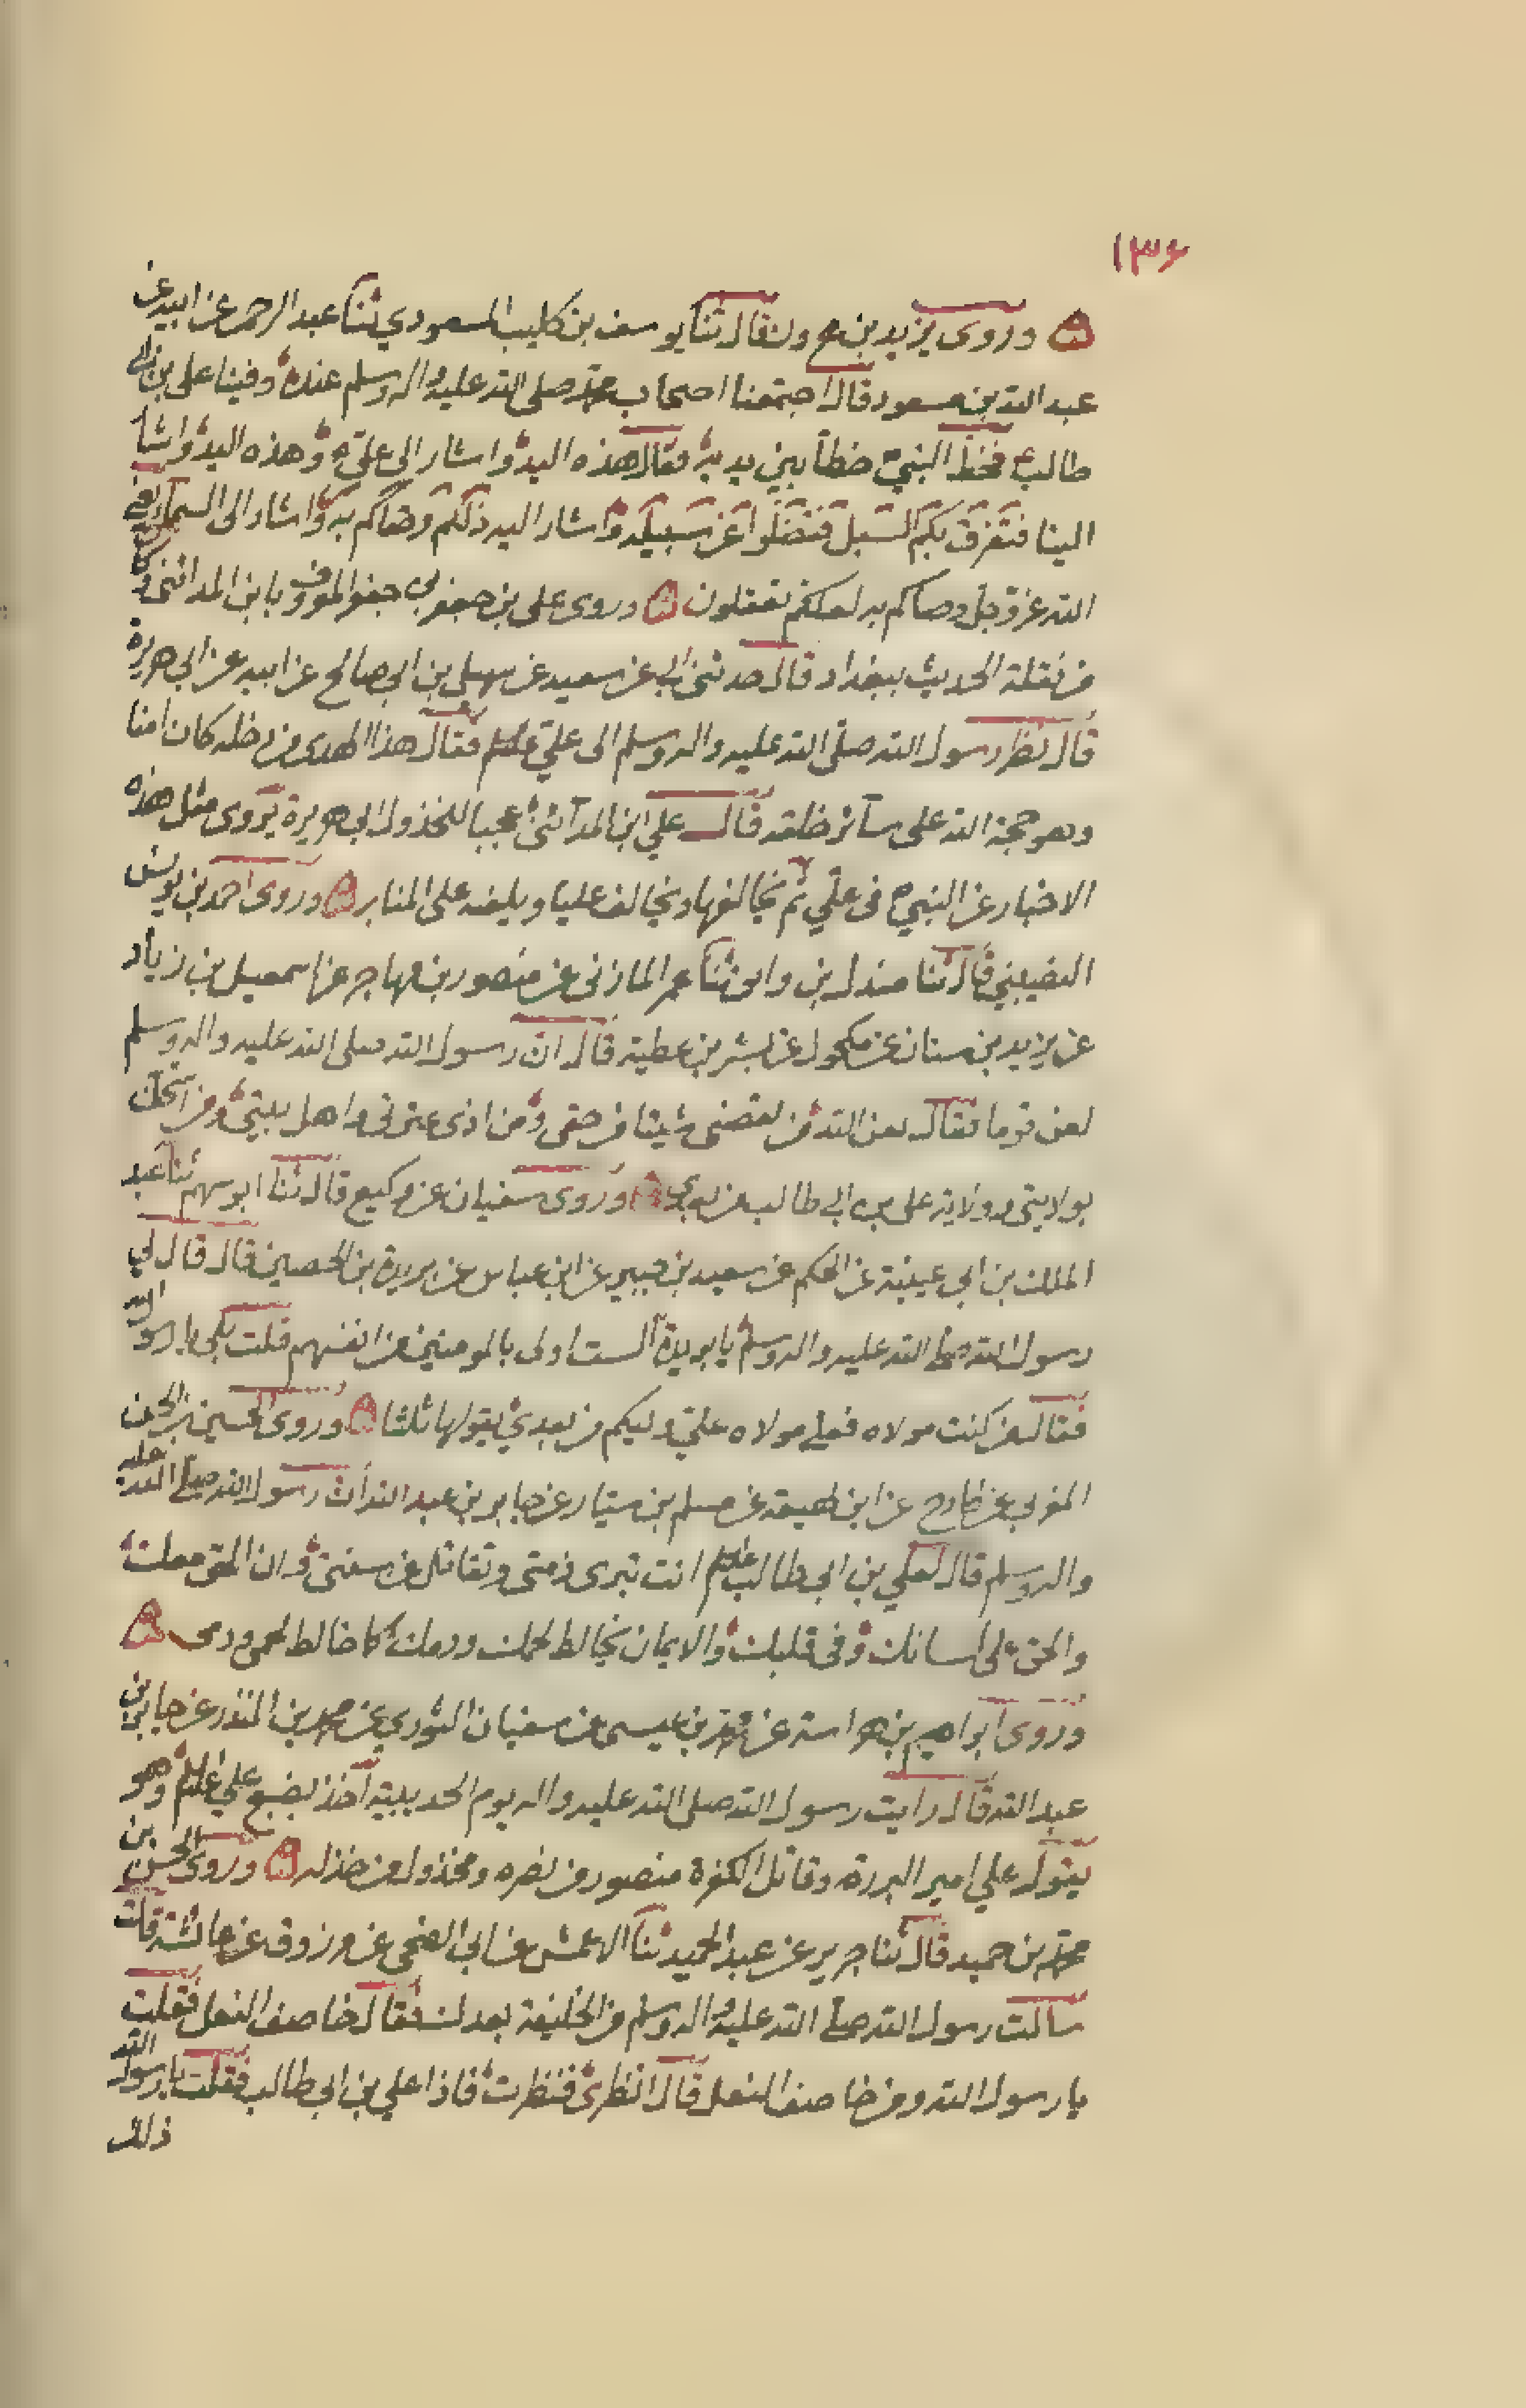 ١٣۶
وروى يزيد بن قال ثنا يوسف بن كليب المسعودي ثنا عبد الرحمن عن ابيه عن
عبد الله بن مسعود قال اجتمعنا اصحاب محمد صلى الله عليه واله وسلم عنده وفينا على بن ابي
طالب ع فخط النبي ص خطا بين يديه فقال هذه اليد واشار الى علي ع وهذه اليد واشار
الينا فتفرق بكم السبل فتضلوا عن سبيله واشار اليه ذلكم وصاكم به واشار الى السماء
الله عز وجل وصاكم به لعلكم تعقلون وروى على بن جعفر بابن المدائنى وكان
من نقلة الحديث ببغداد قال حدثنى ابي عن سعيد عن سهيل بن ابي صالح عن ابيه عن ابي هريرة
قال نظر رسول الله صلى الله عليه واله وسلم الى علي عليه السلم فقال هذا الهدى من دخله كان امنا
وهو حجة الله على سائر خلقه قال علي ابن المدائنى عجبا للمخذول ابي هريرة يروى مثل هذه
الاخبار عن النبي ص فى علي ثم يخالفها ويخالف عليا ويلعنه على المنابر وروى احمد بن يونس
النصيبيني قال ثنا مندل بن والى ثنا عمر المازنى عن منصور بن مهاجر عن اسمعيل بن زياد
عن يزيد بن سنان عن مكحول عن بشر بن عطية قال ان رسول الله صلى الله عليه واله وسلم
لعن قوما فقال لعن الله من نقصنى شيئا من حقى ومن اذى عترتى واهل بيتي ومن استخف
بولايتى وولاية على بن ابي طالب من بعدي وروى سفيان عن وكيع قال ثنا ابو سهم ثنا عبد
الملك بن ابي عيينة عن الحكم عن سعيد بن جبير عن ابن عباس عن بريدة بن الحصين قال قال لي
رسول الله صلى الله عليه واله وسلم يا بريدة الست اولى بالمومنين من انفسهم قلت بلى يا رسول الله
فقال من كنت مولاه فعلي مولاه علي وليكم من بعدي يقولها ثلثا وروى الحسين بن الحسن
عن ابن لهيعه عن مسلم بن سيار عن جابر بن عبد الله ان رسول الله صلى الله عليه
واله وسلم قال لعلي بن ابي طالب عليه السلم انت تبرى ذمتى وتقاتل عن سنتى وان الحق معك
والحق على لسانك وفى قلبك والايمان يخالط لحمك ودمك كما خالط لحمى ودمى
وروى ابراهيم بن هراسة عن بن عيسى عن سفيان الثوري عن محمد بن المنذر عن جابر بن
عبد الله قال رايت رسول الله صلى الله عليه واله يوم الحديبية اخذ بضبع علي عليه السلم وهو
يقول علي امير البررة وقاتل الكفرة منصور من نصره ومخذول من خذله وروى الحسن بن
محمد بن حميد قال ثنا جرير عن عبد الحميد ثنا الاعمش عن ابي الضحى عن مرزوق عن عائشة قالت
سالت رسول الله صلى الله عليه واله وسلم من الخليفة بعدك فقال خاصف النعل فقلت
يا رسول الله ومن خاصف النعل قال انظري فنظرت فاذا علي بن ابي طالب فقلت يا رسول الله
ذلك